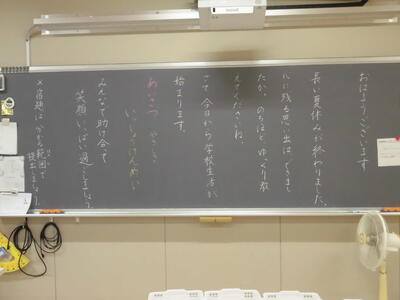 おはようございます
長い夏休みが終わりました。
心に残る思い出はできまし
たか。のちほどゆっくり教
えてくださいね。
さて今日から学校生活が
始まります。
あいさつ やさしさ
いっしょうけんめい
みんなで助け合って
笑顔いっぱいで過ごしましょう
※宿題は分かる範囲で
提出しましょう